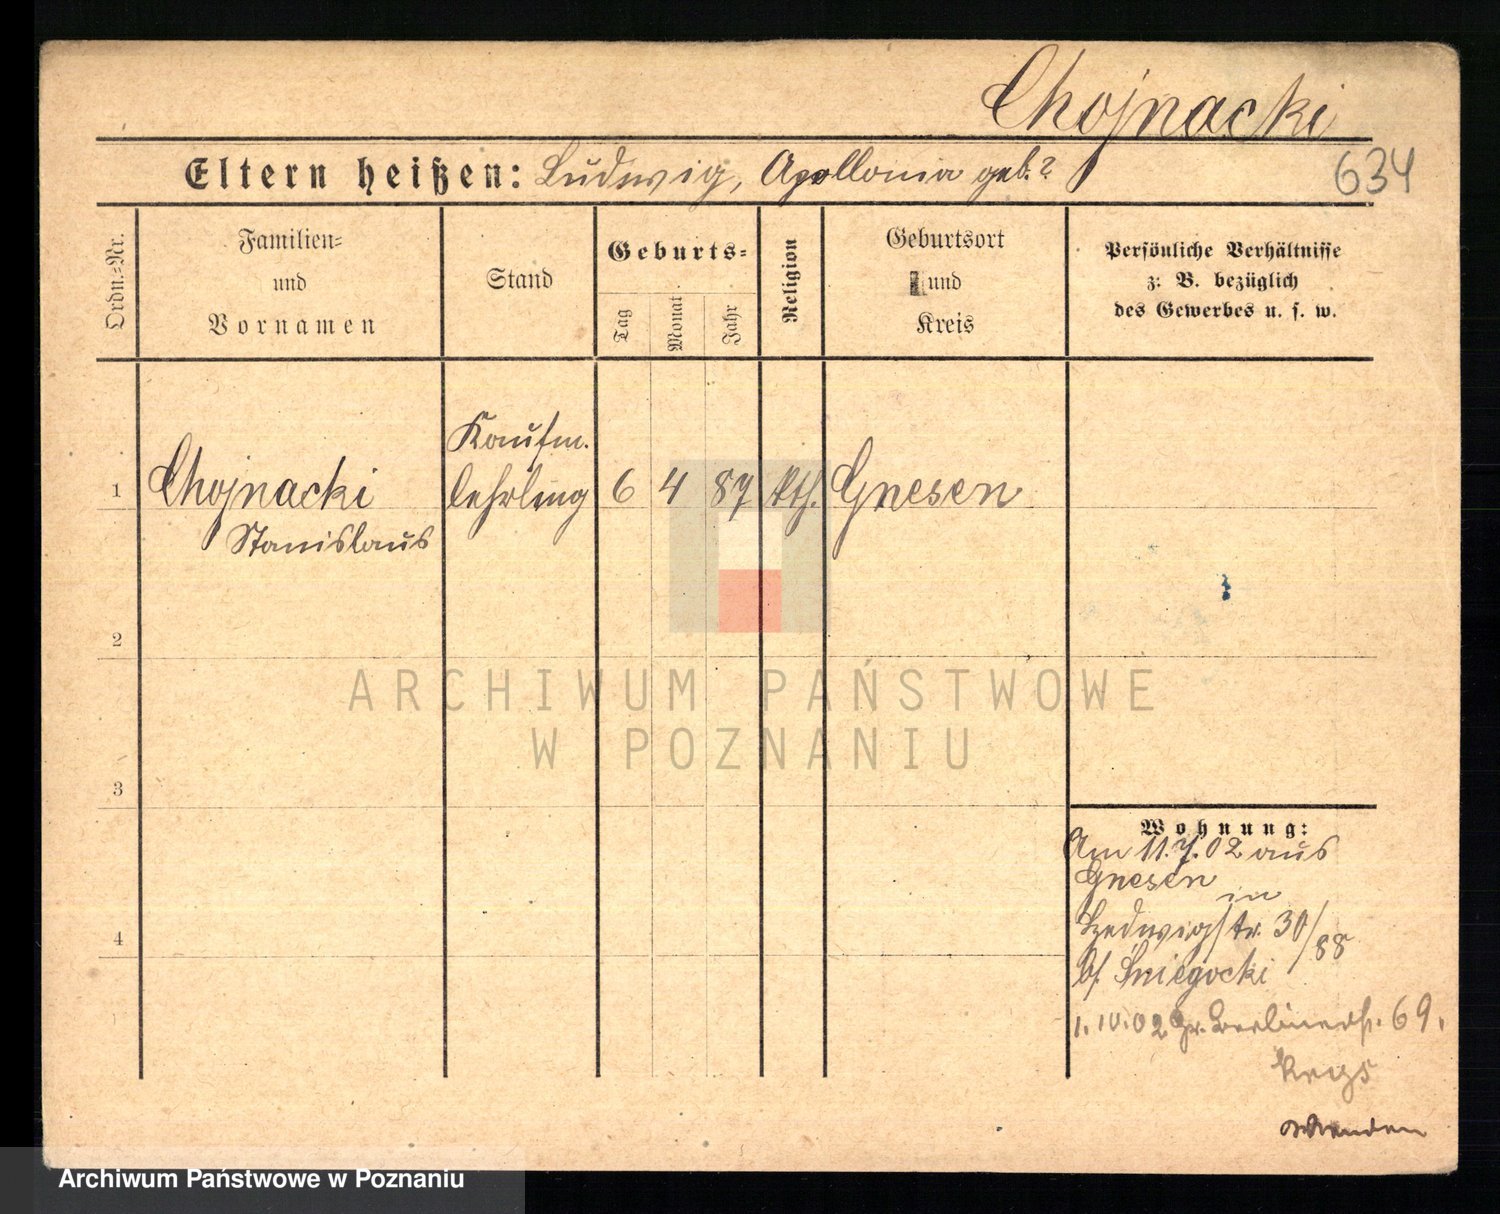 Chojnacki
Eltern heißen: Ludwig, Apollonia geb. ?
634
Ordn.=Nr.
Familien=
und
Vornamen
Stand
Geburts=
Tag
Monat
Jahr
Religion
Geburtsort
und
Kreis
Persönliche Verhältnisse
z. B. bezüglich
des Gewerbes u. s. w.
Kaufm.
1 Chojnacki lehrling 6 4 87 kth. Gnesen
Stanislaus
2
ARCHIWUM PAŃSTWOWE
W POZNANIU
3
Wohnung:
Am 11.7.02 aus
Gnesen
in
4
Hedwigstr. 30/88
bei Śniegocki
1.10.02 Gr. Berlinerstr. 69.
wenden
Archiwum Państwowe w Poznaniu